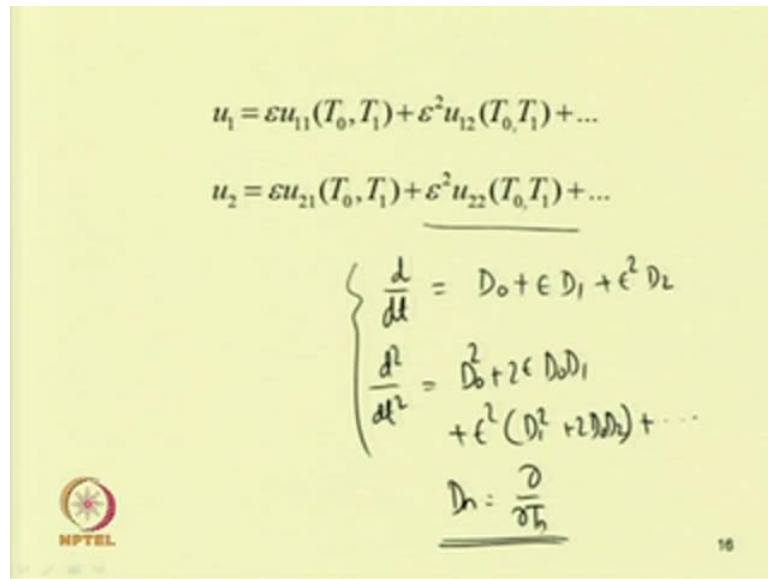 u₁ = εu₁₁(T₀,T₁)+ε²u₁₂(T₀,T₁)+...
u₂ = εu₂₁(T₀,T₁)+ε²u₂₂(T₀,T₁)+...
d/dt = D₀ + ϵ D₁ + ϵ² D₂
d²/dt² = D₀² + 2ϵ D₀D₁
+ ϵ² (D₁² + 2D₀D₂) + ...
Dₙ = ∂/∂Tₙ
NPTEL
16